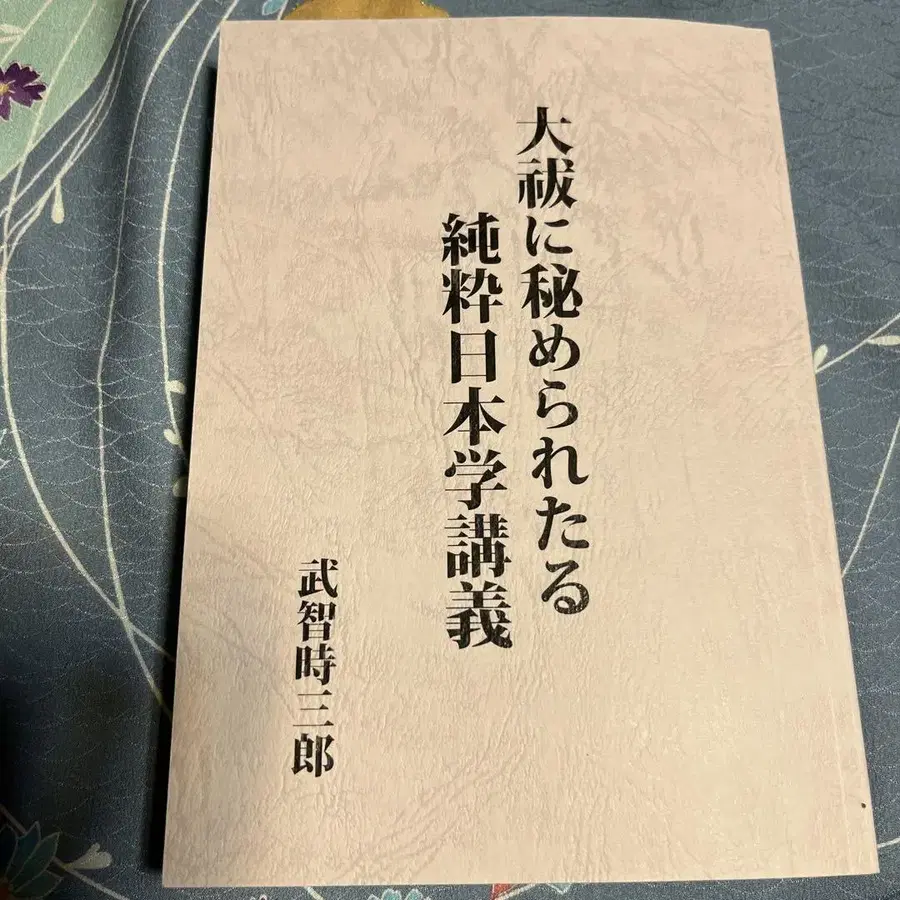 大祓に秘められたる
純粋日本学講義
武智時三郎